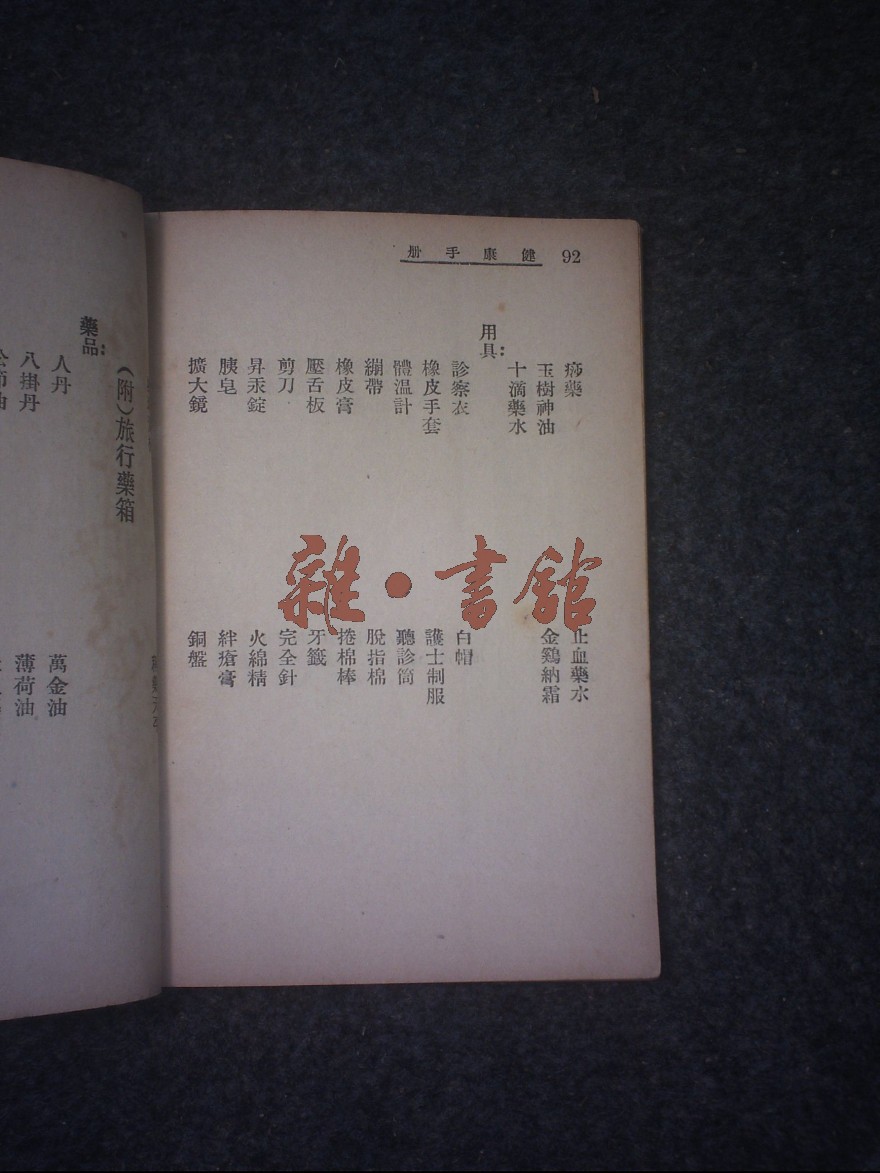 健康手册 92
痧藥
止血藥水
玉樹神油
金鷄納霜
十滴藥水
用具：
診察衣
白帽
橡皮手套
護士制服
體温計
聽診筒
繃帶
脫指棉
橡皮膏
捲棉棒
壓舌板
牙籤
剪刀
完全針
昇汞錠
火綿精
胰皂
絆瘡膏
擴大鏡
銅盤
（附）旅行藥箱
藥品：
人丹
萬金油
八掛丹
薄荷油
雜·書館